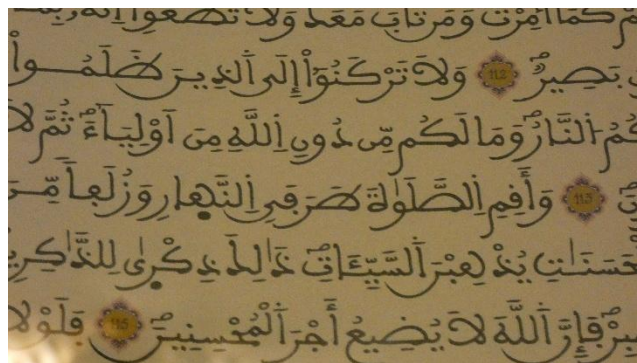 كَمَا أُمِرْتَ وَمَن تَابَ مَعَكَ وَلَا تَطْغَوْا إِنَّهُ بِمَا
بَصِيرٌ 112 وَلَا تَرْكَنُوٓا إِلَى اَلذِينَ ظَلَمُوا
كُمُ اُلنَّارُ وَمَا لَكُم مِّن دُونِ اِللَّهِ مِنَ اَوْلِيَآءَ ثُمَّ لَا
113 وَأَقِمِ اِلصَّلَوٰةَ طَرَفَيِ اِلنَّهارِ وَزُلَفاً مِّنَ
لْحَسَنَٰتِ يُذْهِبْنَ اَلسَّيِّـَٔاتِ ذَٰلِكَ ذِكْرىٰ لِلذَّٰكِرِي
بِرْ فَإِنَّ اَللَّهَ لَا يُضِيعُ أَجْرَ اَلْمُحْسِنِينَ 115 فَلَوْلَا